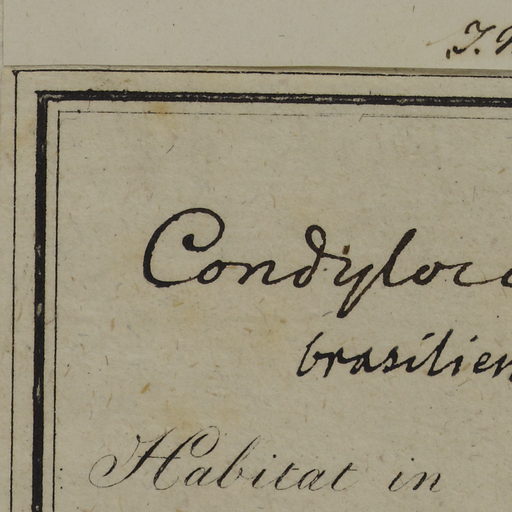 J.
Condyloc
brasilien
Habitat in